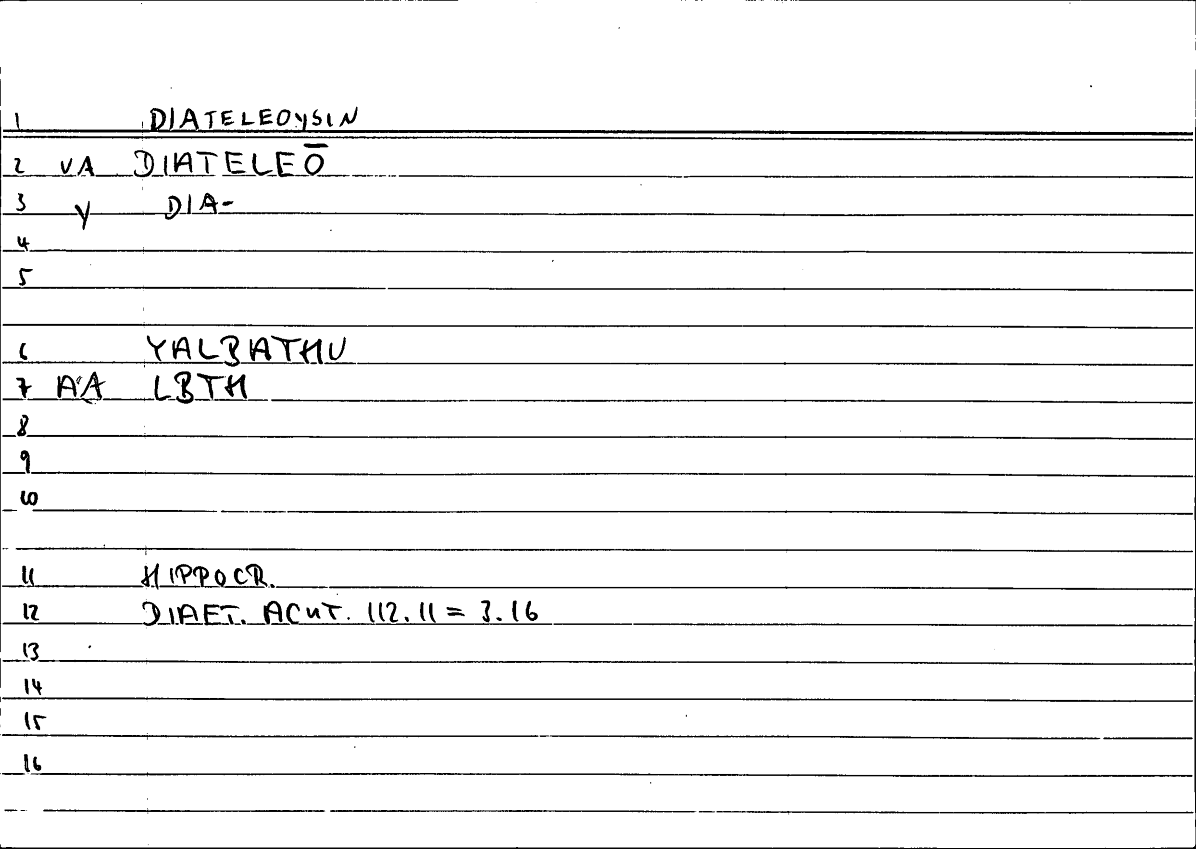 1 DIATELEOYSIN
2 VA DIATELEŌ
3 Y DIA-
4
5
6 YALBATHU
7 AA LBTH
8
9
10
11 HIPPOCR.
12 DIAET. ACUT. 112.11 = 3.16
13
14
15
16